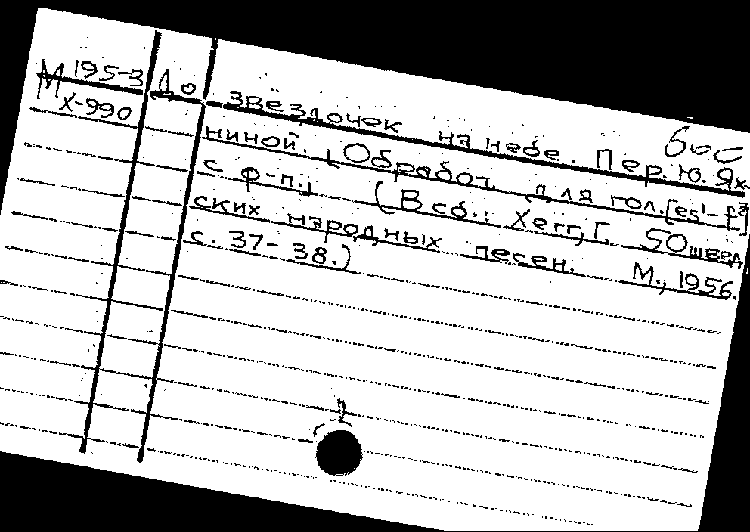 М 195-3 До звёздочек на небе. Пер. Ю. Ях
Х-990 ниной. [Обработ. для гол. [es¹-f²]
с ф-п.] (В сб.: Хегг, Г. 50 швед
ских народных песен. М., 1956.
с. 37-38.)